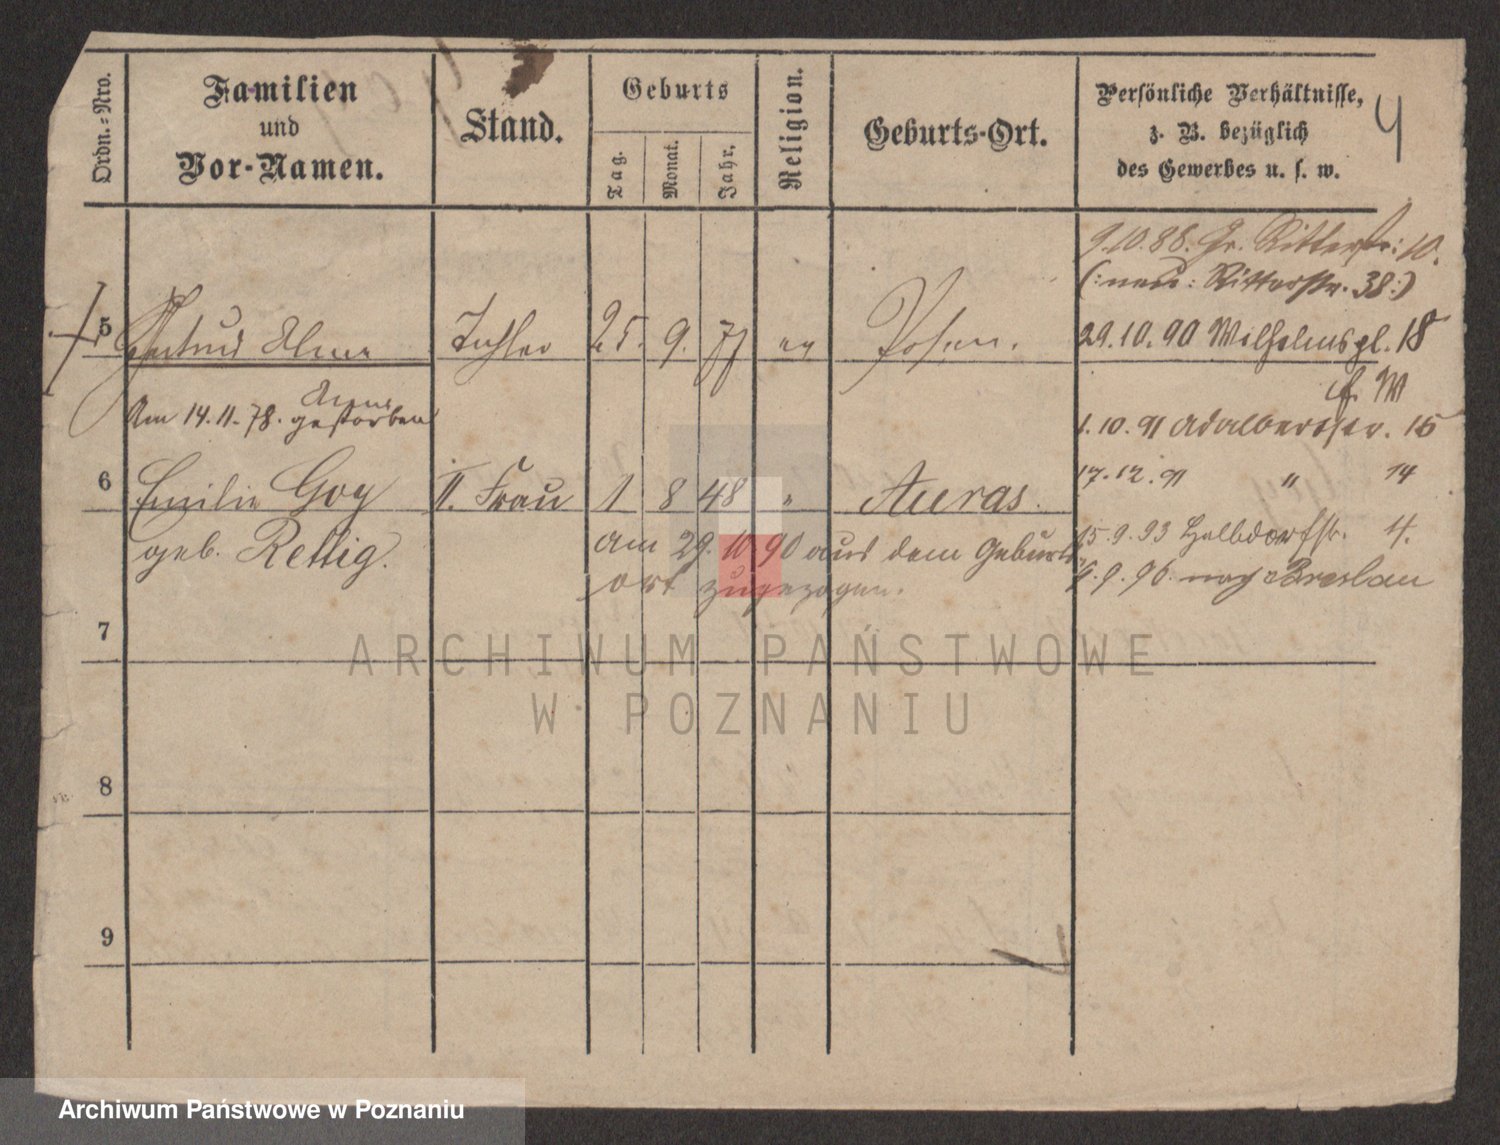 Ordn.-Nro.
Familien
und
Vor-Namen.
Stand.
Geburts
Tag.
Monat.
Jahr.
Religion.
Geburts-Ort.
Persönliche Verhältnisse,
z. B. bezüglich
des Gewerbes u. s. w.
4
9.10.88. Gr. Ritterstr: 10.
(: neu: Ritterstr. 38:)
5 Gertrud Tochter 25. 9. 77 ev Posen.
29.10.90 Wilhelmspl. 18
Am 14.11.78. gestorben
1.10.91 Adalbertstr. 15
6 Emilie Goy II. Frau 1 8 48 " Auras.
17.12.91 " 14
geb. Rettig.
am 29.10.90 aus dem Geburts
ort zugezogen.
15.9.93 Halbdorfstr. 4.
9.96. nach Breslau
7
ARCHIWUM PAŃSTWOWE
W POZNANIU
8
9
Archiwum Państwowe w Poznaniu